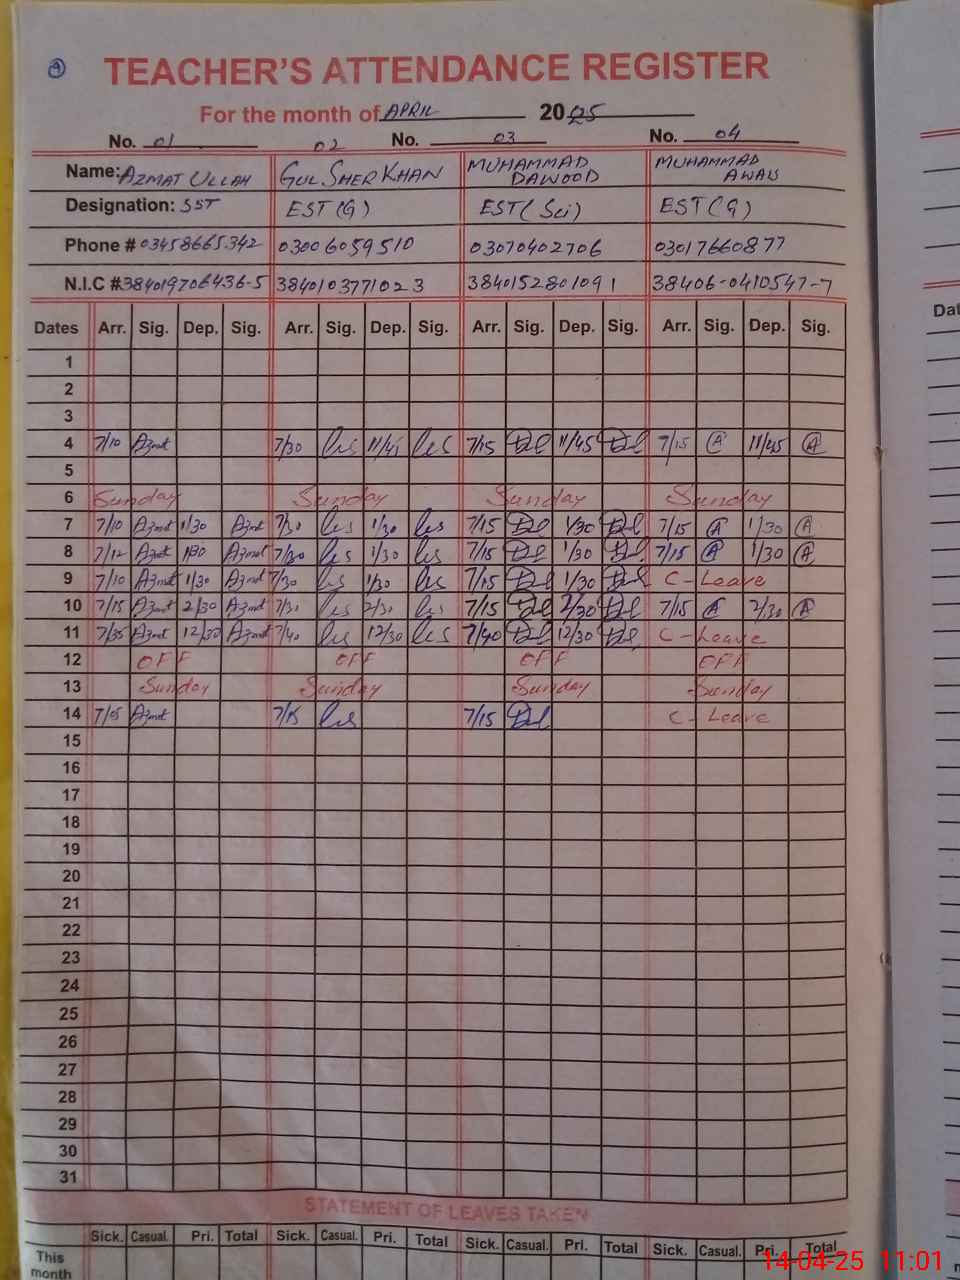 A
TEACHER'S ATTENDANCE REGISTER
For the month of APRIL 2025
No. 01 02 No. 03 No. 04
Name: AZMAT ULLAH GUL SHER KHAN MUHAMMAD DAWOOD MUHAMMAD
Designation: SST EST (G) EST (Sci) EST (G)
Phone # 03458665342 03006059510 03070402706 03017660877
N.I.C # 384019706436-5 3840103771023 3840152801091 38406-0410547-7
Dates Arr. Sig. Dep. Sig. Arr. Sig. Dep. Sig. Arr. Sig. Dep. Sig. Arr. Sig. Dep. Sig.
1
2
3
4 7/10 Azmat 7/30 7/15 11/45 7/15 A 11/45 A
5
6 Sunday Sunday Sunday Sunday
7 7/10 Azmat 1/30 Azmat 7/30 1/30 7/15 1/30 7/15 A 1/30 A
8 7/12 Azmat 1/30 Azmat 7/30 1/30 7/15 1/30 7/15 A 1/30 A
9 7/10 Azmat 1/30 Azmat 7/30 1/30 7/15 1/30 C-Leave
10 7/15 Azmat 2/30 Azmat 7/30 2/30 7/15 2/30 7/15 A 2/30 A
11 7/35 Azmat 12/30 Azmat 7/40 12/30 7/40 12/30 C-Leave
12 OFF OFF OFF OFF
13 Sunday Sunday Sunday Sunday
14 7/05 Azmat 7/15 7/15 C-Leave
15
16
17
18
19
20
21
22
23
24
25
26
27
28
29
30
31
STATEMENT OF LEAVES TAKEN
Sick. Casual. Pri. Total Sick. Casual. Pri. Total Sick. Casual. Pri. Total Sick. Casual. Pri. Total
This
month
14-04-25 11:01